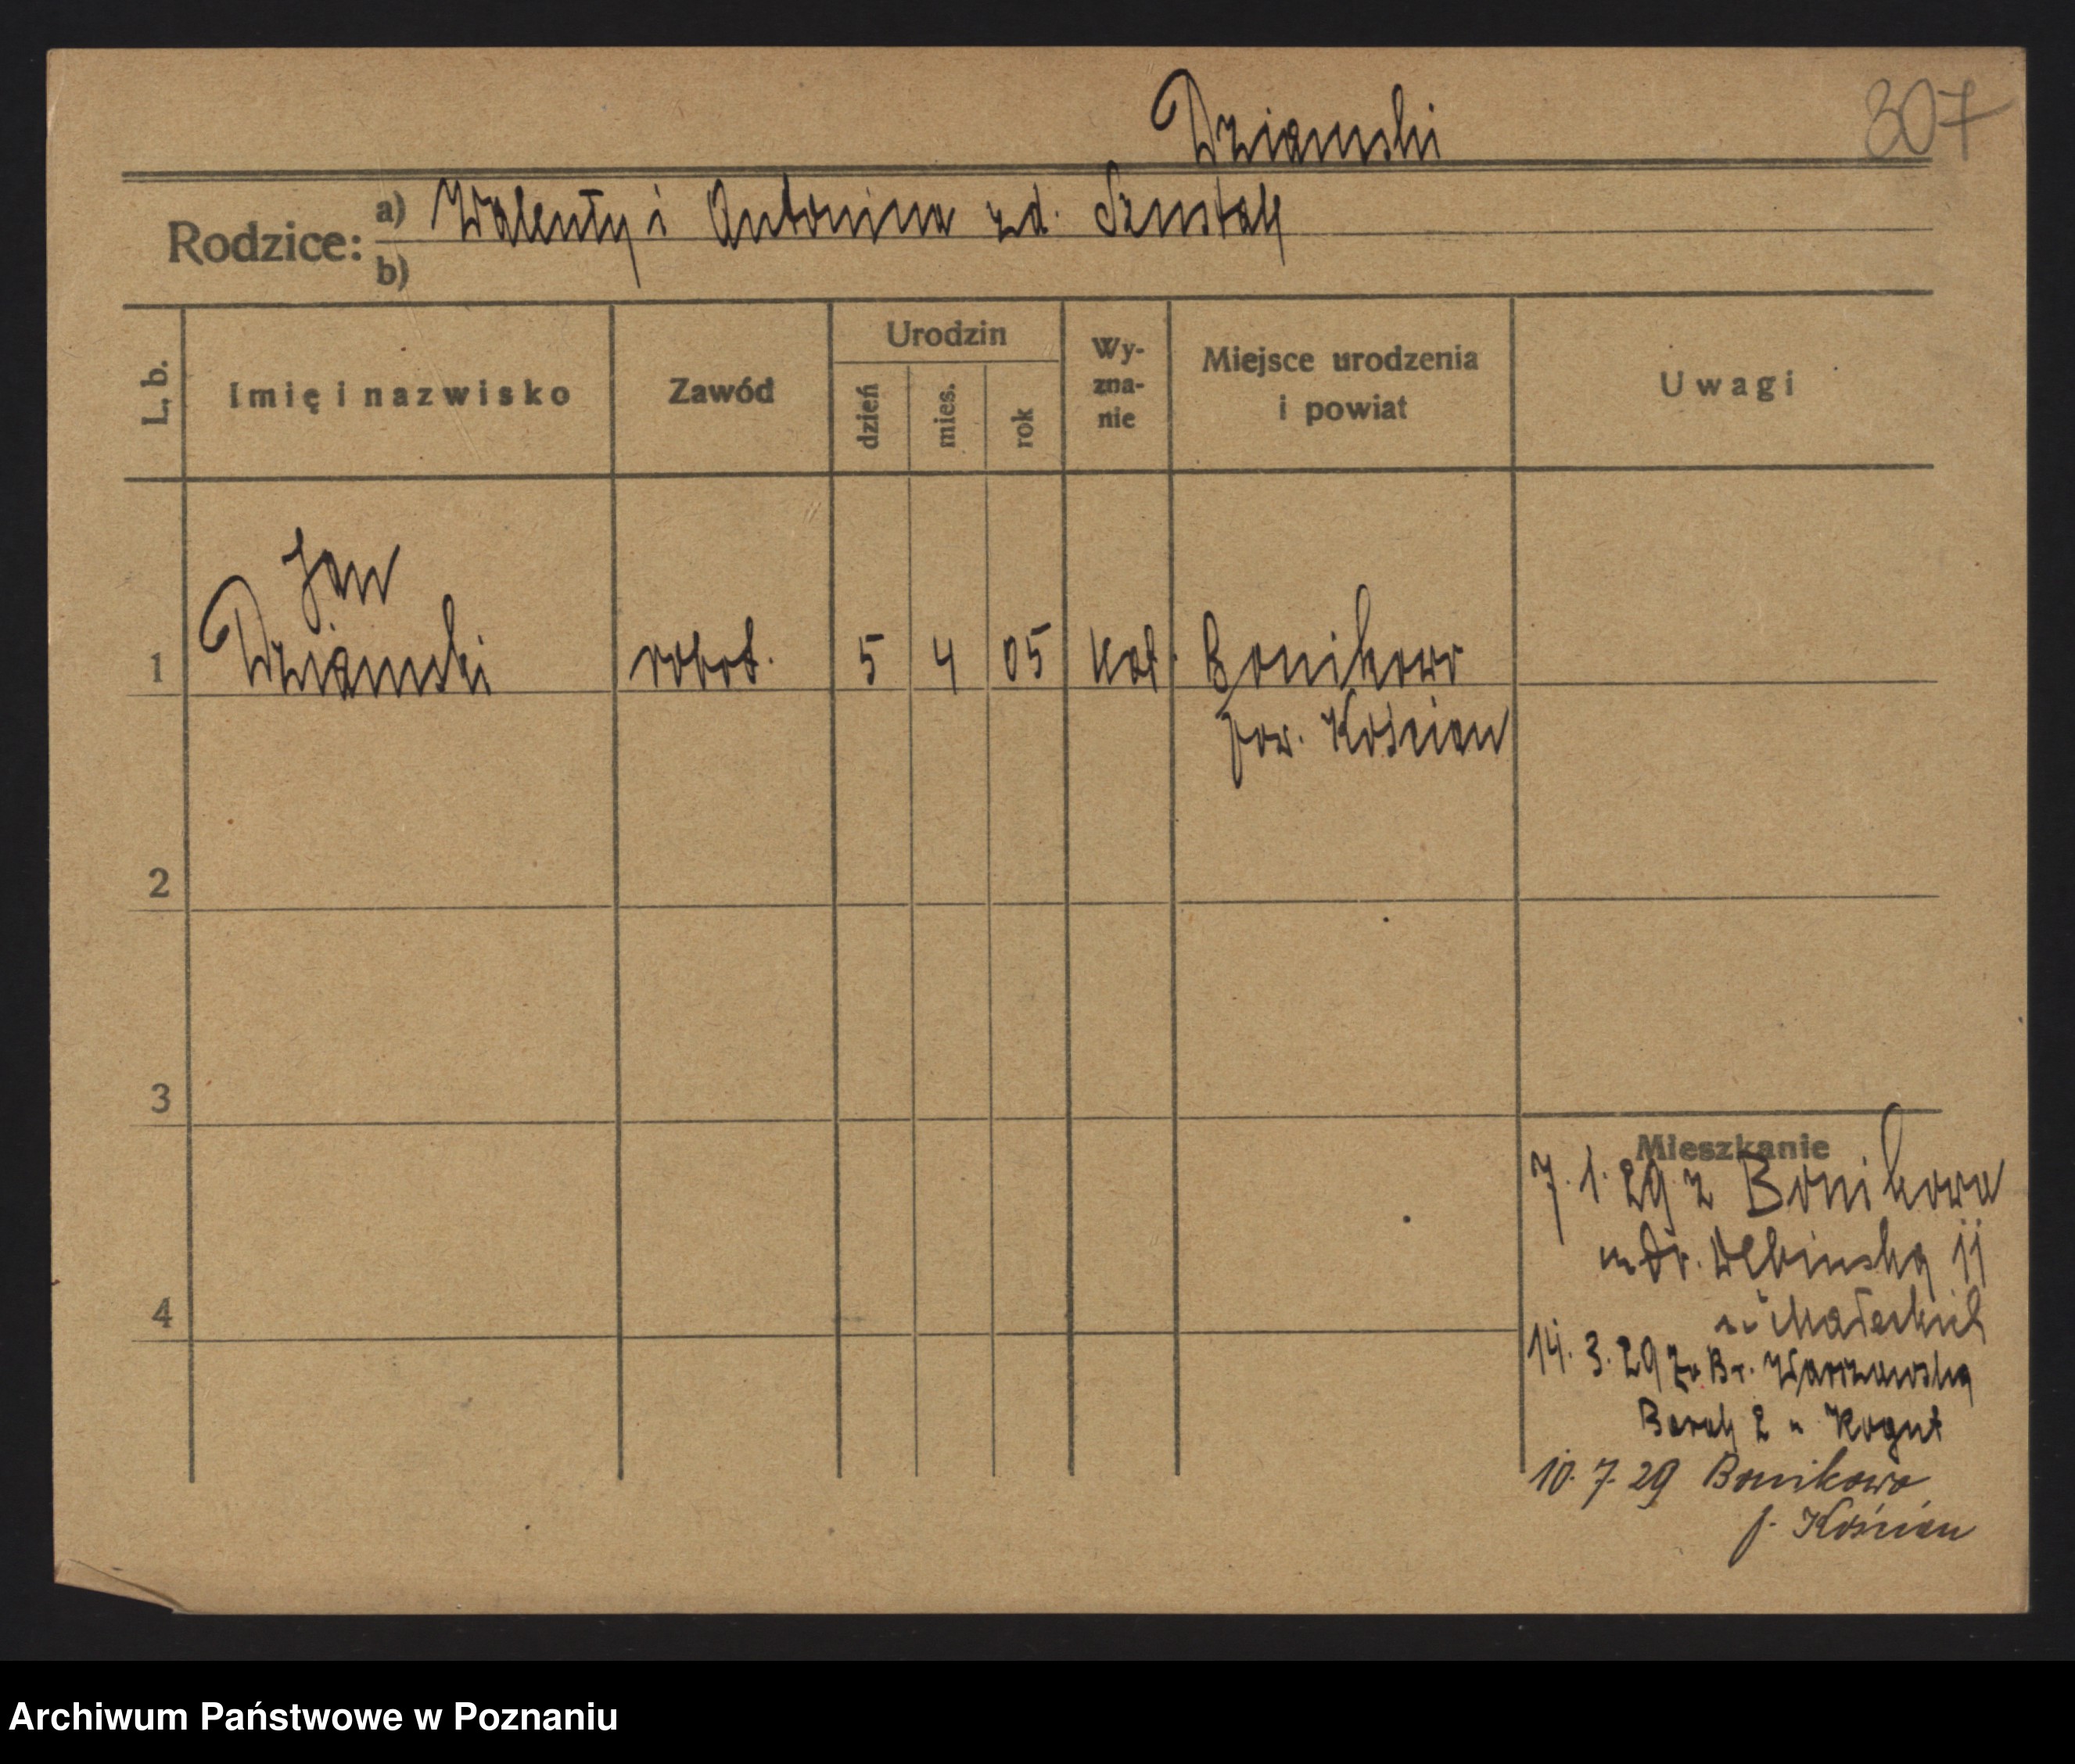 Dziamski
307
Rodzice:
a) Walenty i Antonina zd. Szustak
b)
L. b.
Imię i nazwisko
Zawód
Urodzin
dzień
mies.
rok
Wy-
zna-
nie
Miejsce urodzenia
i powiat
Uwagi
Jan
1 Dziamski robot. 5 4 05 kat. Bonikowo
pow. Kościan
2
3
4
Mieszkanie
7. 1. 29 z Bonikowa
Dębińska 11
u Małeckich
14. 3. 29 Warszawska
Barak 2 u Kogut
10. 7. 29 Bonikowo
p. Kościan
Archiwum Państwowe w Poznaniu